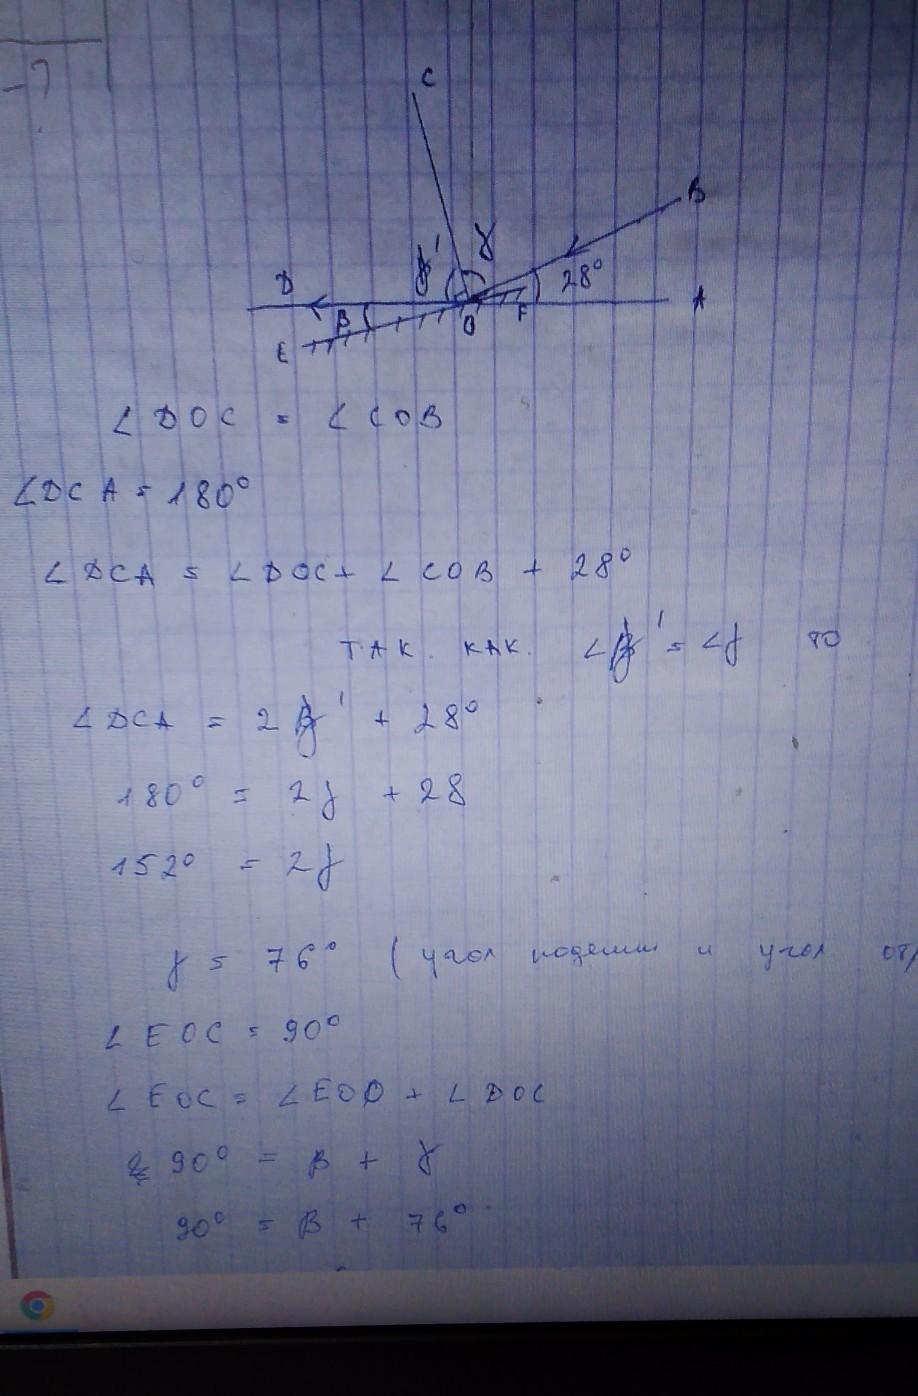 -7
C
B
γ'
γ
28°
D
A
β
O
F
E
∠DOC = ∠COB
∠DCA = 180°
∠DCA = ∠DOC + ∠COB + 28°
ТАК КАК ∠γ' = ∠γ ТО
∠DCA = 2γ' + 28°
180° = 2γ + 28
152° = 2γ
γ = 76° (угол падения и угол от
∠EOC = 90°
∠EOC = ∠EOD + ∠DOC
90° = β + γ
90° = β + 76°